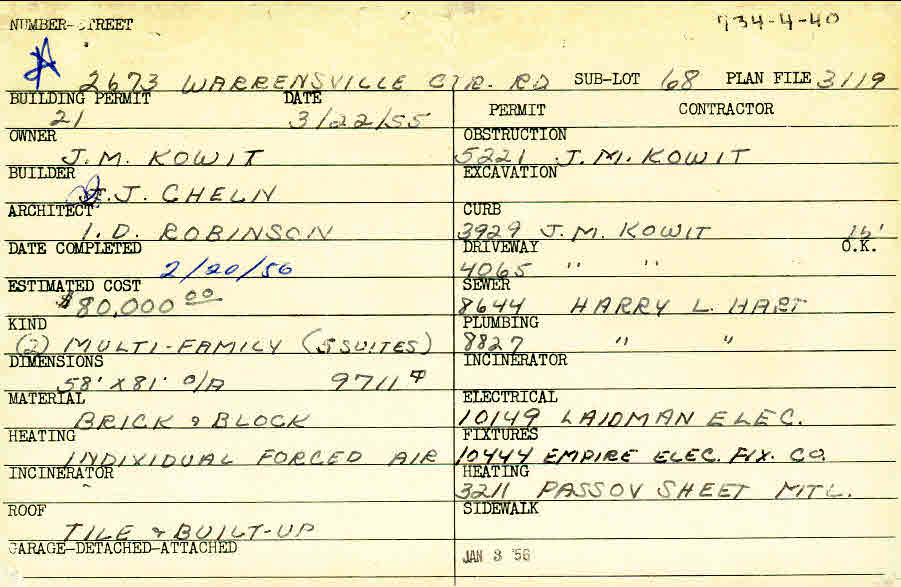 NUMBER-STREET 734-4-40
2673 WARRENSVILLE CTR. RD SUB-LOT 68 PLAN FILE 3119
BUILDING PERMIT DATE
21 3/22/55
OWNER
J. M. KOWIT
BUILDER
J. J. CHELN
ARCHITECT
I. D. ROBINSON
DATE COMPLETED
2/20/56
ESTIMATED COST
$80,000 00
KIND
(2) MULTI-FAMILY (5 SUITES)
DIMENSIONS
58' X 81' O/A 9711
MATERIAL
BRICK & BLOCK
HEATING
INDIVIDUAL FORCED AIR
INCINERATOR
-
ROOF
TILE & BUILT-UP
GARAGE-DETACHED-ATTACHED
PERMIT CONTRACTOR
OBSTRUCTION
5221 J. M. KOWIT
EXCAVATION
CURB
3929 J. M. KOWIT
DRIVEWAY O.K.
4065 " "
SEWER
8644 HARRY L. HART
PLUMBING
8827 " "
INCINERATOR
ELECTRICAL
10149 LAIDMAN ELEC.
FIXTURES
10444 EMPIRE ELEC. FIX. CO.
HEATING
3211 PASSOV SHEET MTL.
SIDEWALK
JAN 3 '56